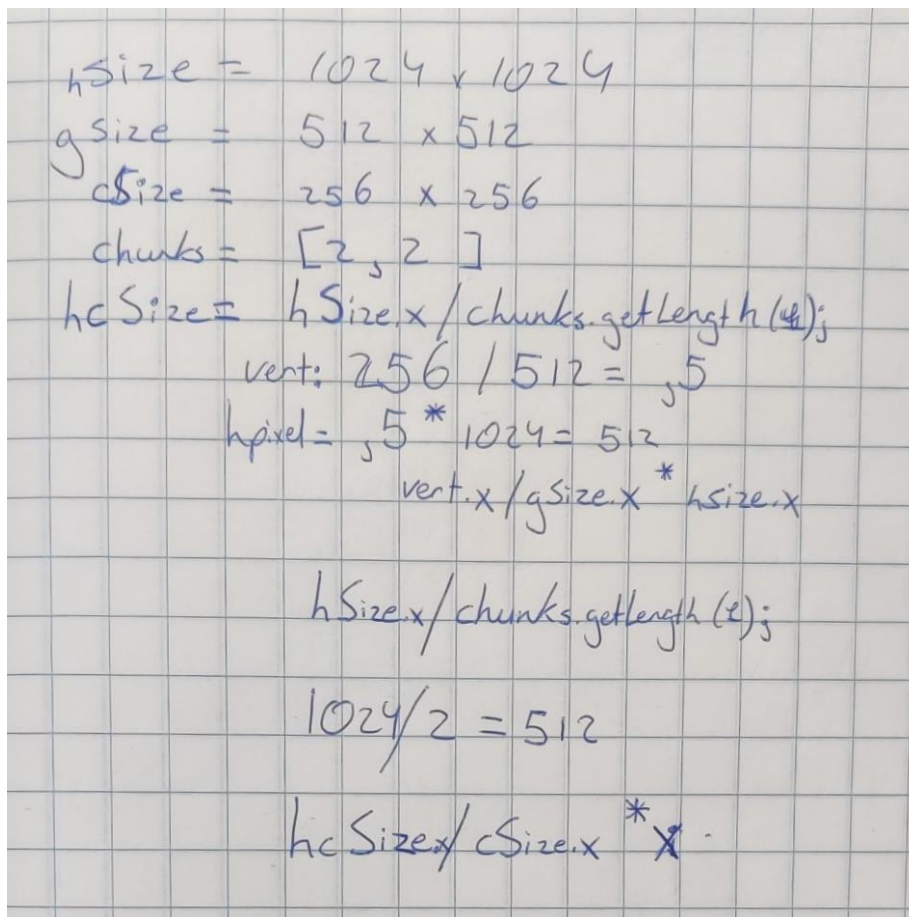 hSize = 1024 x 1024
gSize = 512 x 512
cSize = 256 x 256
chunks = [2, 2]
hcSize = hSize.x/chunks.getLength( );
vert: 256 / 512 = ,5
hpixel = ,5 * 1024 = 512
vert.x/gSize.x * hsize.x
hSize.x/chunks.getLength(1);
1024/2 = 512
hcSize.x/cSize.x * x